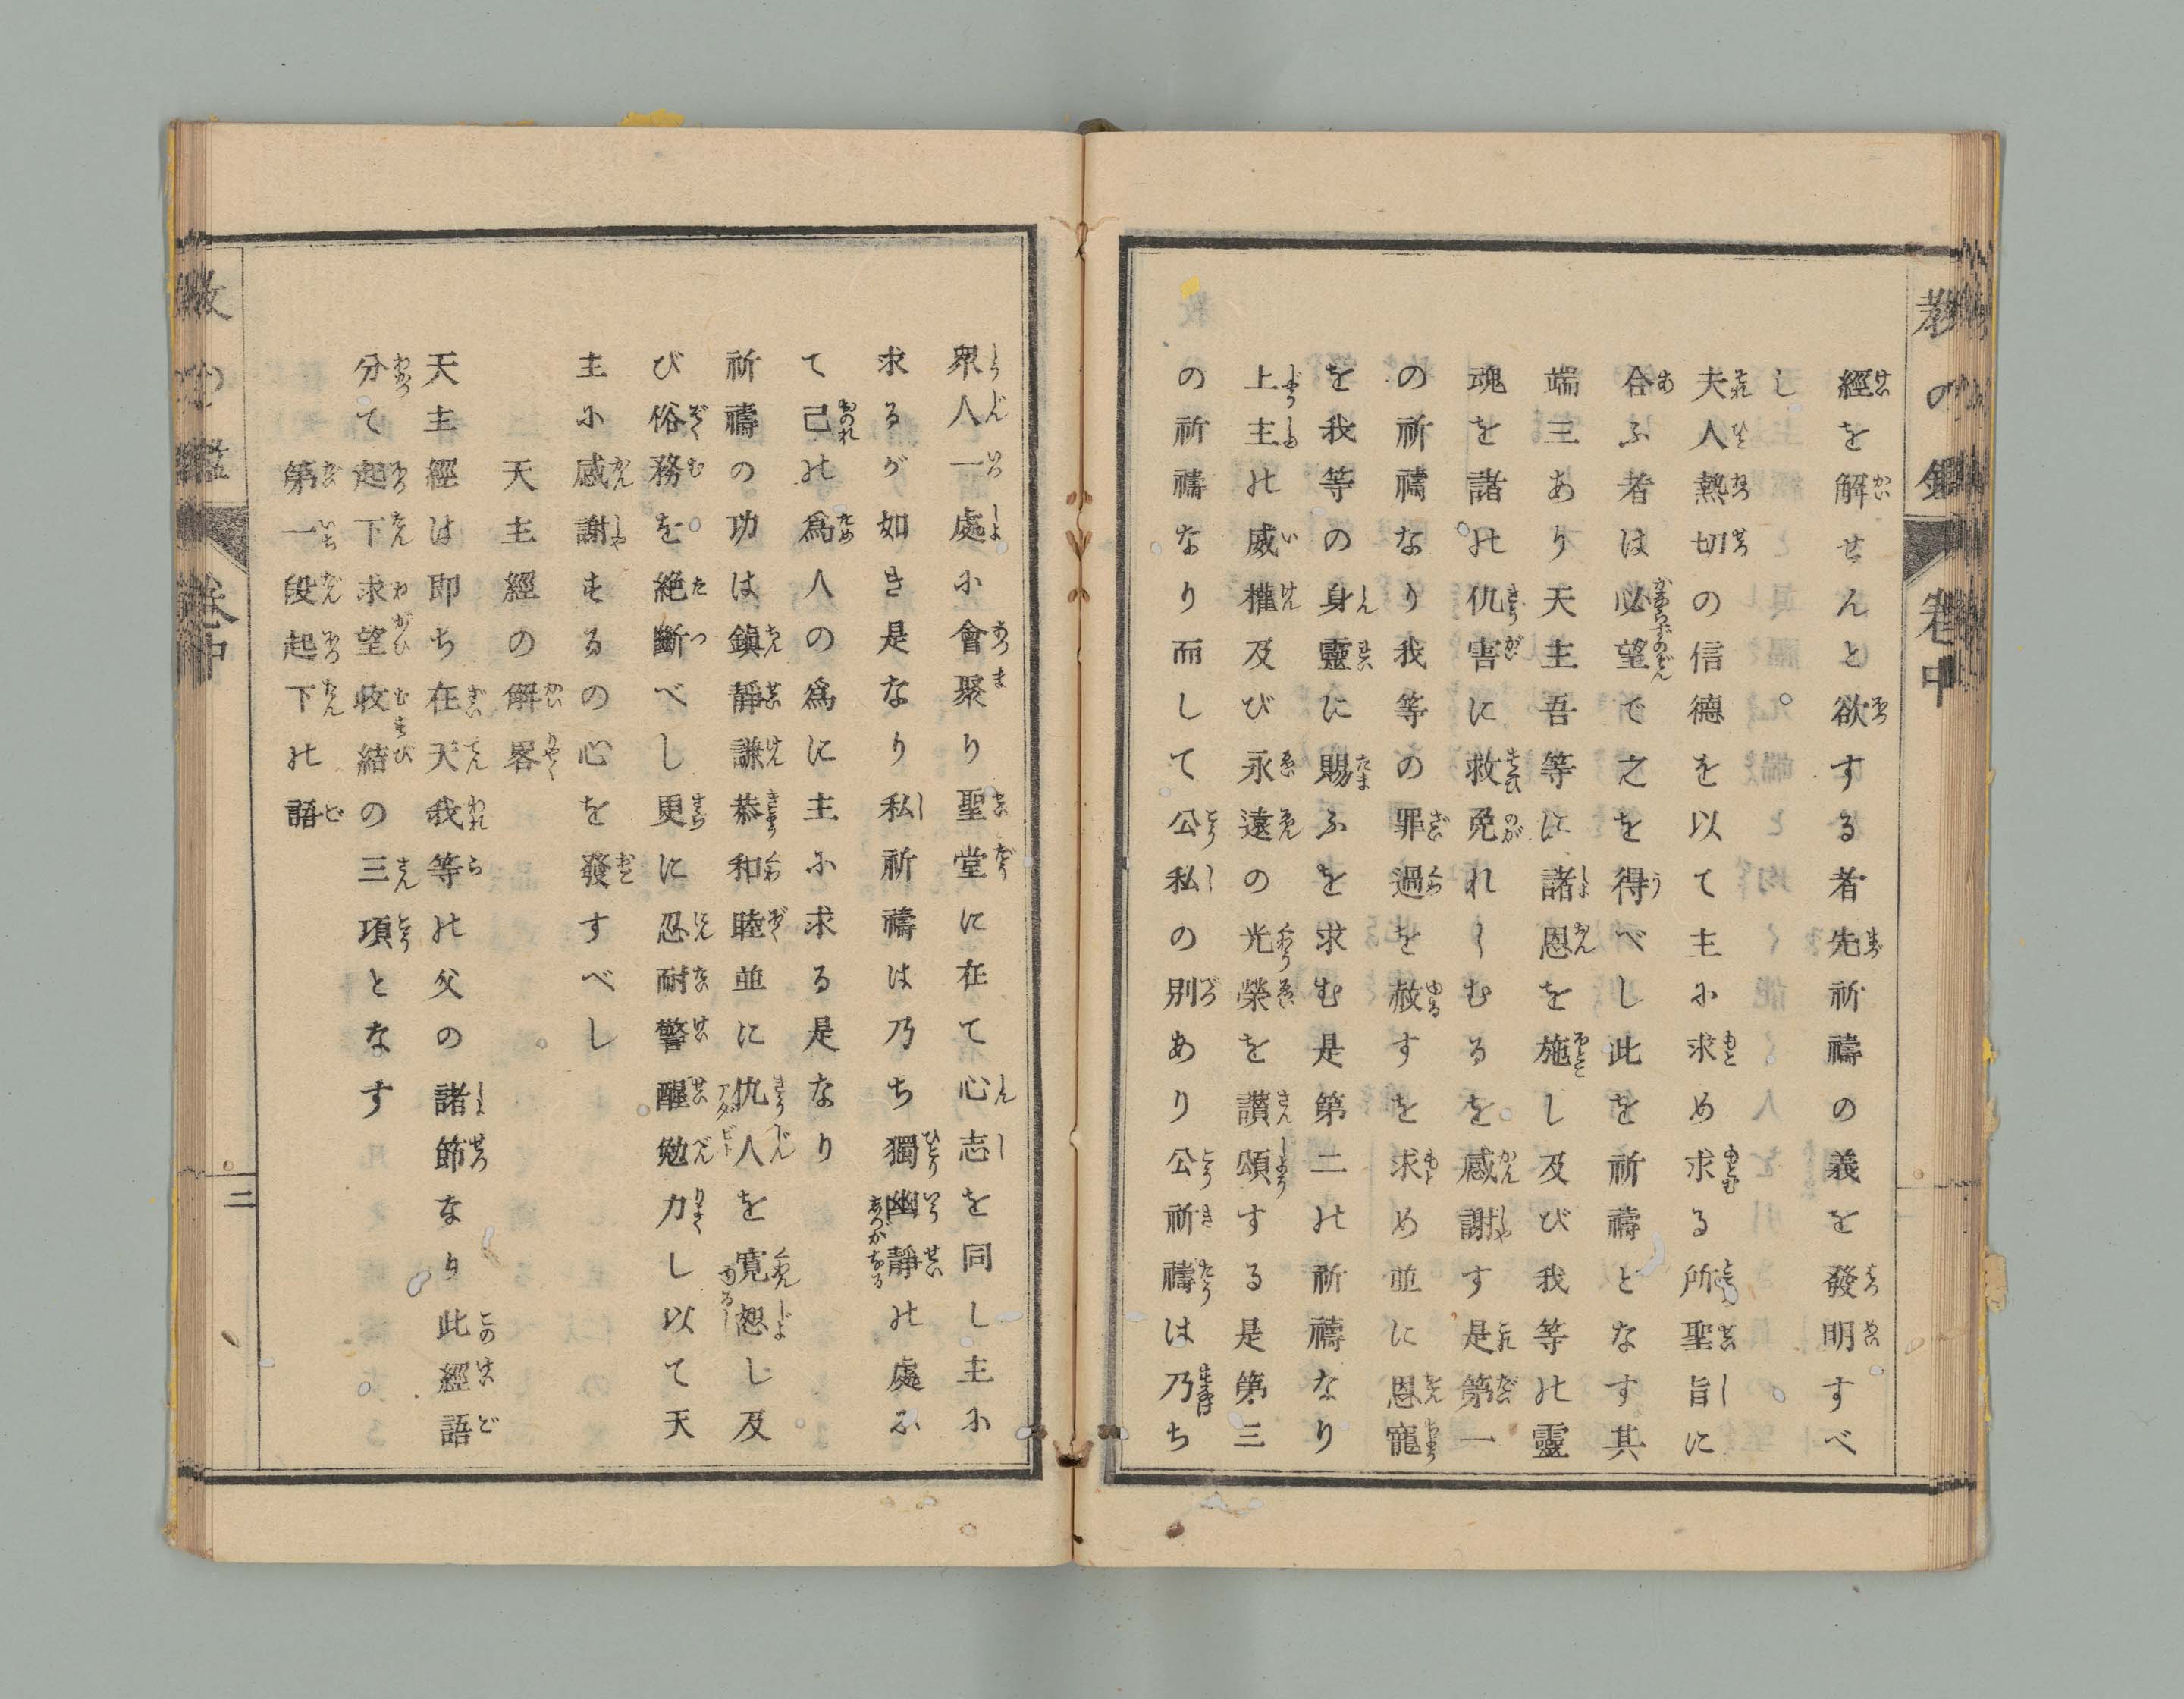 教の鑑 卷中
經を解せんと欲する者先祈禱の義を發明すべ
し
夫人熱切の信德を以て主に求め求る所聖旨に
合ふ者は必望で之を得べし此を祈禱となす其
端三あり天主吾等に諸恩を施し及び我等の靈
魂を諸の仇害に救免れしむるを感謝す是第一
の祈禱なり我等の罪過を赦すを求め並に恩寵
を我等の身靈に賜ふを求む是第二の祈禱なり
上主の威權及び永遠の光榮を讃頌する是第三
の祈禱なり而して公私の別あり公祈禱は乃ち
衆人一處に會聚り聖堂に在て心志を同し主に
求るが如き是なり私祈禱は乃ち獨幽靜の處に
て己の爲人の爲に主に求る是なり
祈禱の功は鎭靜謙恭和睦並に仇人を寛恕し及
び俗務を絶斷べし更に忍耐警醒勉力し以て天
主に感謝するの心を發すべし
天主經の解畧
天主經は即ち在天我等の父の諸節なり此經語
分て起下求望收結の三項となす
第一段起下の語
教の鑑 卷中 二